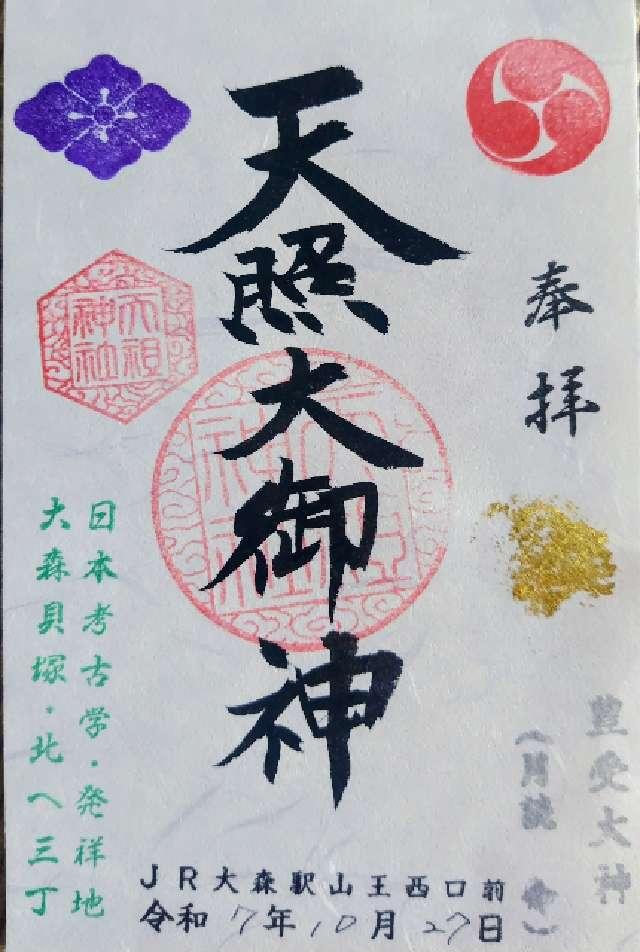 奉拝
豊受大神
(月読 命)
天照大御神
天祖神社
天祖神社
日本考古学・発祥地
大森貝塚・北へ三丁
JR大森駅山王西口前
令和7年10月27日